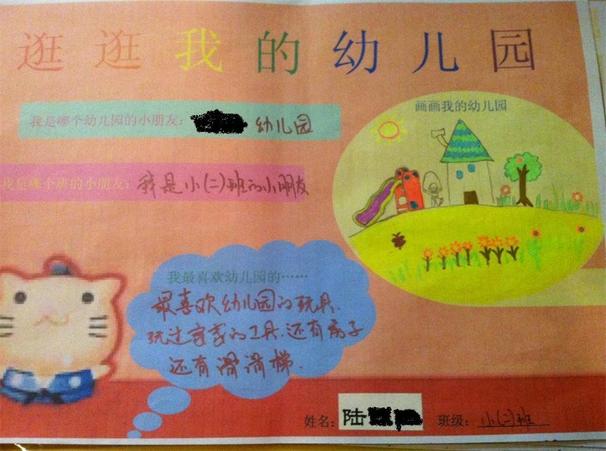 逛逛我的幼儿园
我是哪个幼儿园的小朋友： 幼儿园
画画我的幼儿园
我是哪个班的小朋友：我是小(二)班的小朋友
我最喜欢幼儿园的……
最喜欢幼儿园的玩具.
玩过家家的工具.还有房子
还有滑滑梯.
姓名：陆 班级：小(二)班